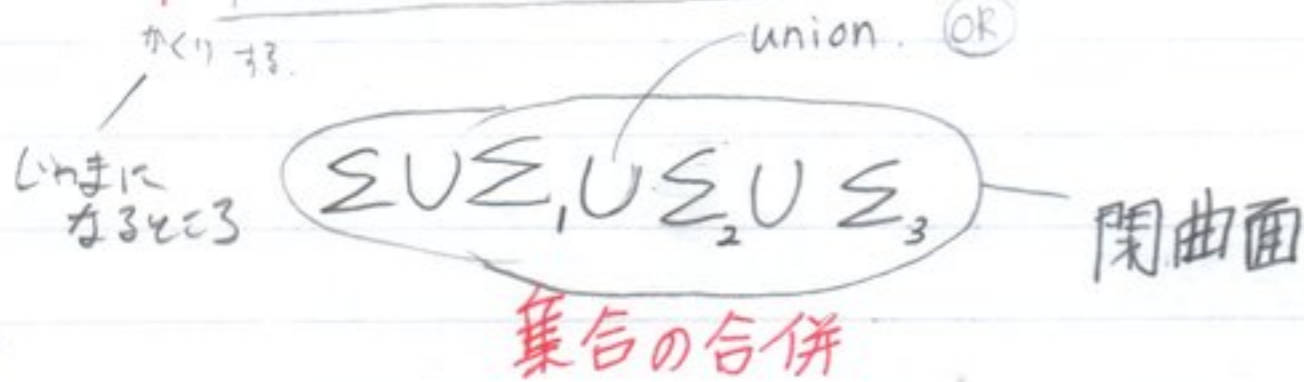 かくりする.
union. OR
じゃまに
なるところ
Σ∪Σ₁∪Σ₂∪Σ₃
閉曲面
集合の合併